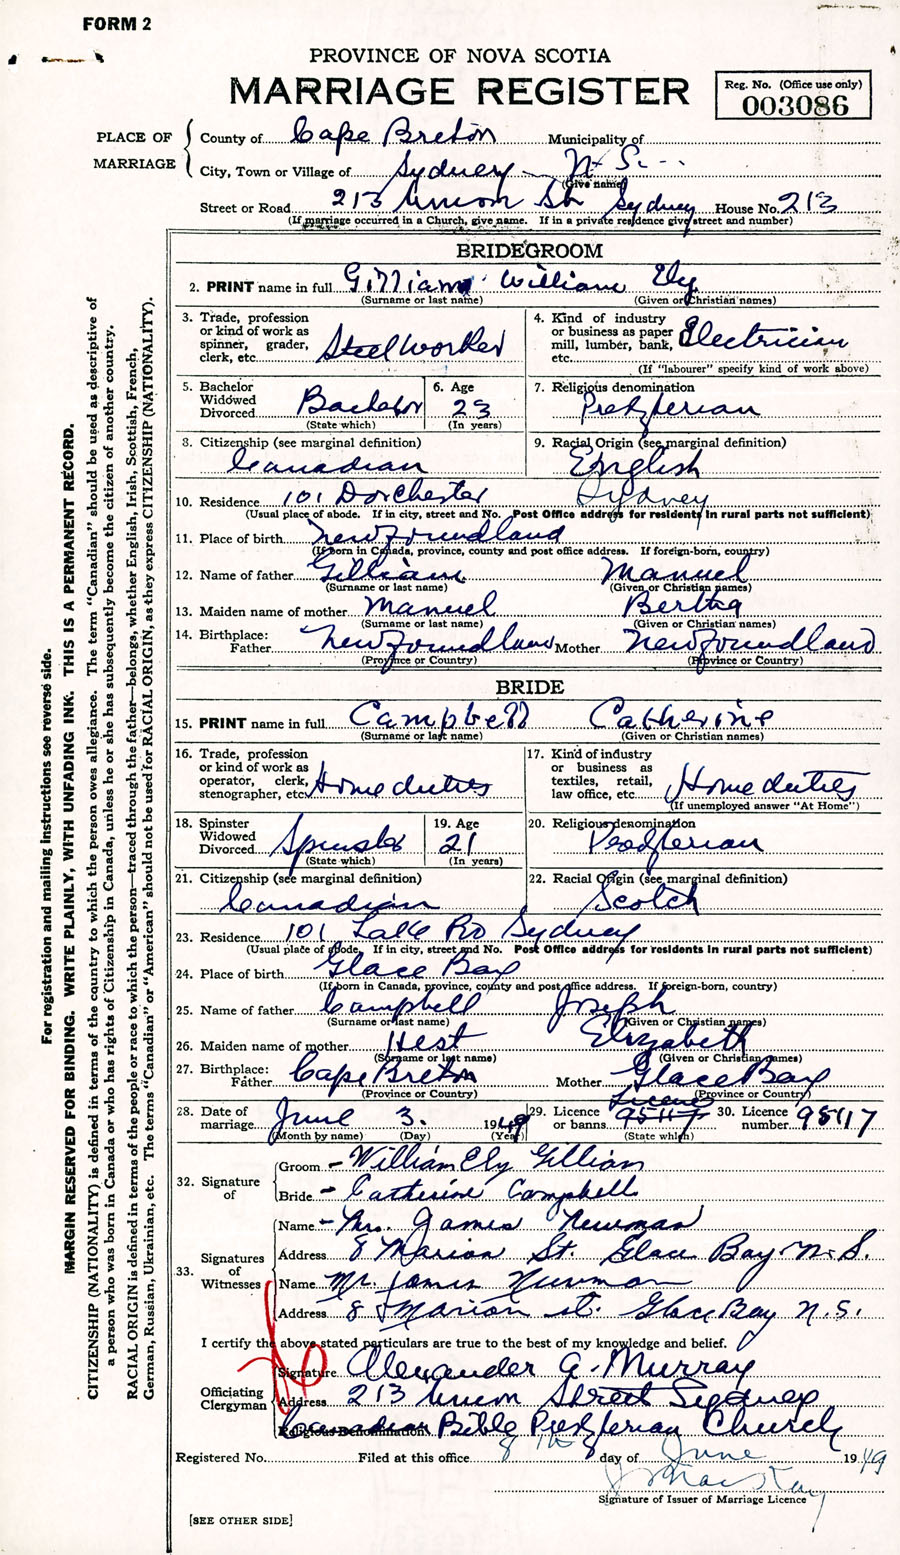 FORM 2
PROVINCE OF NOVA SCOTIA
MARRIAGE REGISTER
Reg. No. (Office use only)
003086
PLACE OF MARRIAGE
County of Cape Breton Municipality of
City, Town or Village of Sydney N. S.
(Give name)
Street or Road 213 Union St. Sydney House No. 213
(If marriage occurred in a Church, give name. If in a private residence give street and number)
BRIDEGROOM
2. PRINT name in full Gilliam William Ely
(Surname or last name) (Given or Christian names)
3. Trade, profession or kind of work as spinner, grader, clerk, etc. Steel Worker
4. Kind of industry or business as paper mill, lumber, bank, etc. Electrician
(If "labourer" specify kind of work above)
5. Bachelor Widowed Divorced Bachelor
(State which)
6. Age 23
(In years)
7. Religious denomination Presbyterian
8. Citizenship (see marginal definition) Canadian
9. Racial Origin (see marginal definition) English
10. Residence 101 Dorchester Sydney
(Usual place of abode. If in city, street and No. Post Office address for residents in rural parts not sufficient)
11. Place of birth Newfoundland
(If born in Canada, province, county and post office address. If foreign-born, country)
12. Name of father Gilliam Manuel
(Surname or last name) (Given or Christian names)
13. Maiden name of mother Manuel Bertha
(Surname or last name) (Given or Christian names)
14. Birthplace: Father Newfoundland Mother Newfoundland
(Province or Country) (Province or Country)
BRIDE
15. PRINT name in full Campbell Catherine
(Surname or last name) (Given or Christian names)
16. Trade, profession or kind of work as operator, clerk, stenographer, etc. Home duties
17. Kind of industry or business as textiles, retail, law office, etc. Home duties
(If unemployed answer "At Home")
18. Spinster Widowed Divorced Spinster
(State which)
19. Age 21
(In years)
20. Religious denomination Presbyterian
21. Citizenship (see marginal definition) Canadian
22. Racial Origin (see marginal definition) Scotch
23. Residence 101 Sydney
(Usual place of abode. If in city, street and No. Post Office address for residents in rural parts not sufficient)
24. Place of birth Glace Bay
(If born in Canada, province, county and post office address. If foreign-born, country)
25. Name of father Campbell Joseph
(Surname or last name) (Given or Christian names)
26. Maiden name of mother Elizabeth
(Surname or last name) (Given or Christian names)
27. Birthplace: Father Cape Breton Mother Glace Bay
(Province or Country) (Province or Country)
28. Date of marriage June 3. 1949
(Month by name) (Day) (Year)
29. Licence or banns 95117
(State which)
30. Licence number 95117
32. Signature of
Groom - William Ely Gilliam
Bride - Catherine Campbell
33. Signatures of Witnesses
Name - Mrs. James Newman
Address 8 Marion St. Glace Bay N. S.
Name Mr. James Newman
Address 8 Marion St. Glace Bay N.S.
I certify the above stated particulars are true to the best of my knowledge and belief.
Officiating Clergyman
Signature Alexander A. Murray
Address 213 Union Street Sydney
Religious Denomination Canadian Bible Presbyterian Church
Registered No. Filed at this office 8 day of June 1949
Signature of Issuer of Marriage Licence
[SEE OTHER SIDE]
For registration and mailing instructions see reverse side.
MARGIN RESERVED FOR BINDING. WRITE PLAINLY, WITH UNFADING INK. THIS IS A PERMANENT RECORD.
CITIZENSHIP (NATIONALITY) is defined in terms of the country to which the person owes allegiance. The term "Canadian" should be used as descriptive of
a person who was born in Canada or who has rights of Citizenship in Canada, unless he or she has subsequently become the citizen of another country.
RACIAL ORIGIN is defined in terms of the people or race to which the person—traced through the father—belongs, whether English, Irish, Scottish, French,
German, Russian, Ukrainian, etc. The terms "Canadian" or "American" should not be used for RACIAL ORIGIN, as they express CITIZENSHIP (NATIONALITY).